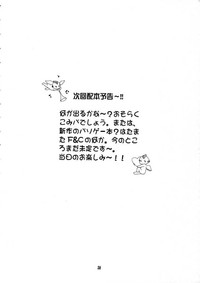 次回配本予告～!!
何が出るかな～？おそらく
こみパでしょう。または、
新布のパソゲー本？はたま
たF&Cの何か。今のとこ
ろまだ未定です～。
当日のお楽しみ～！！